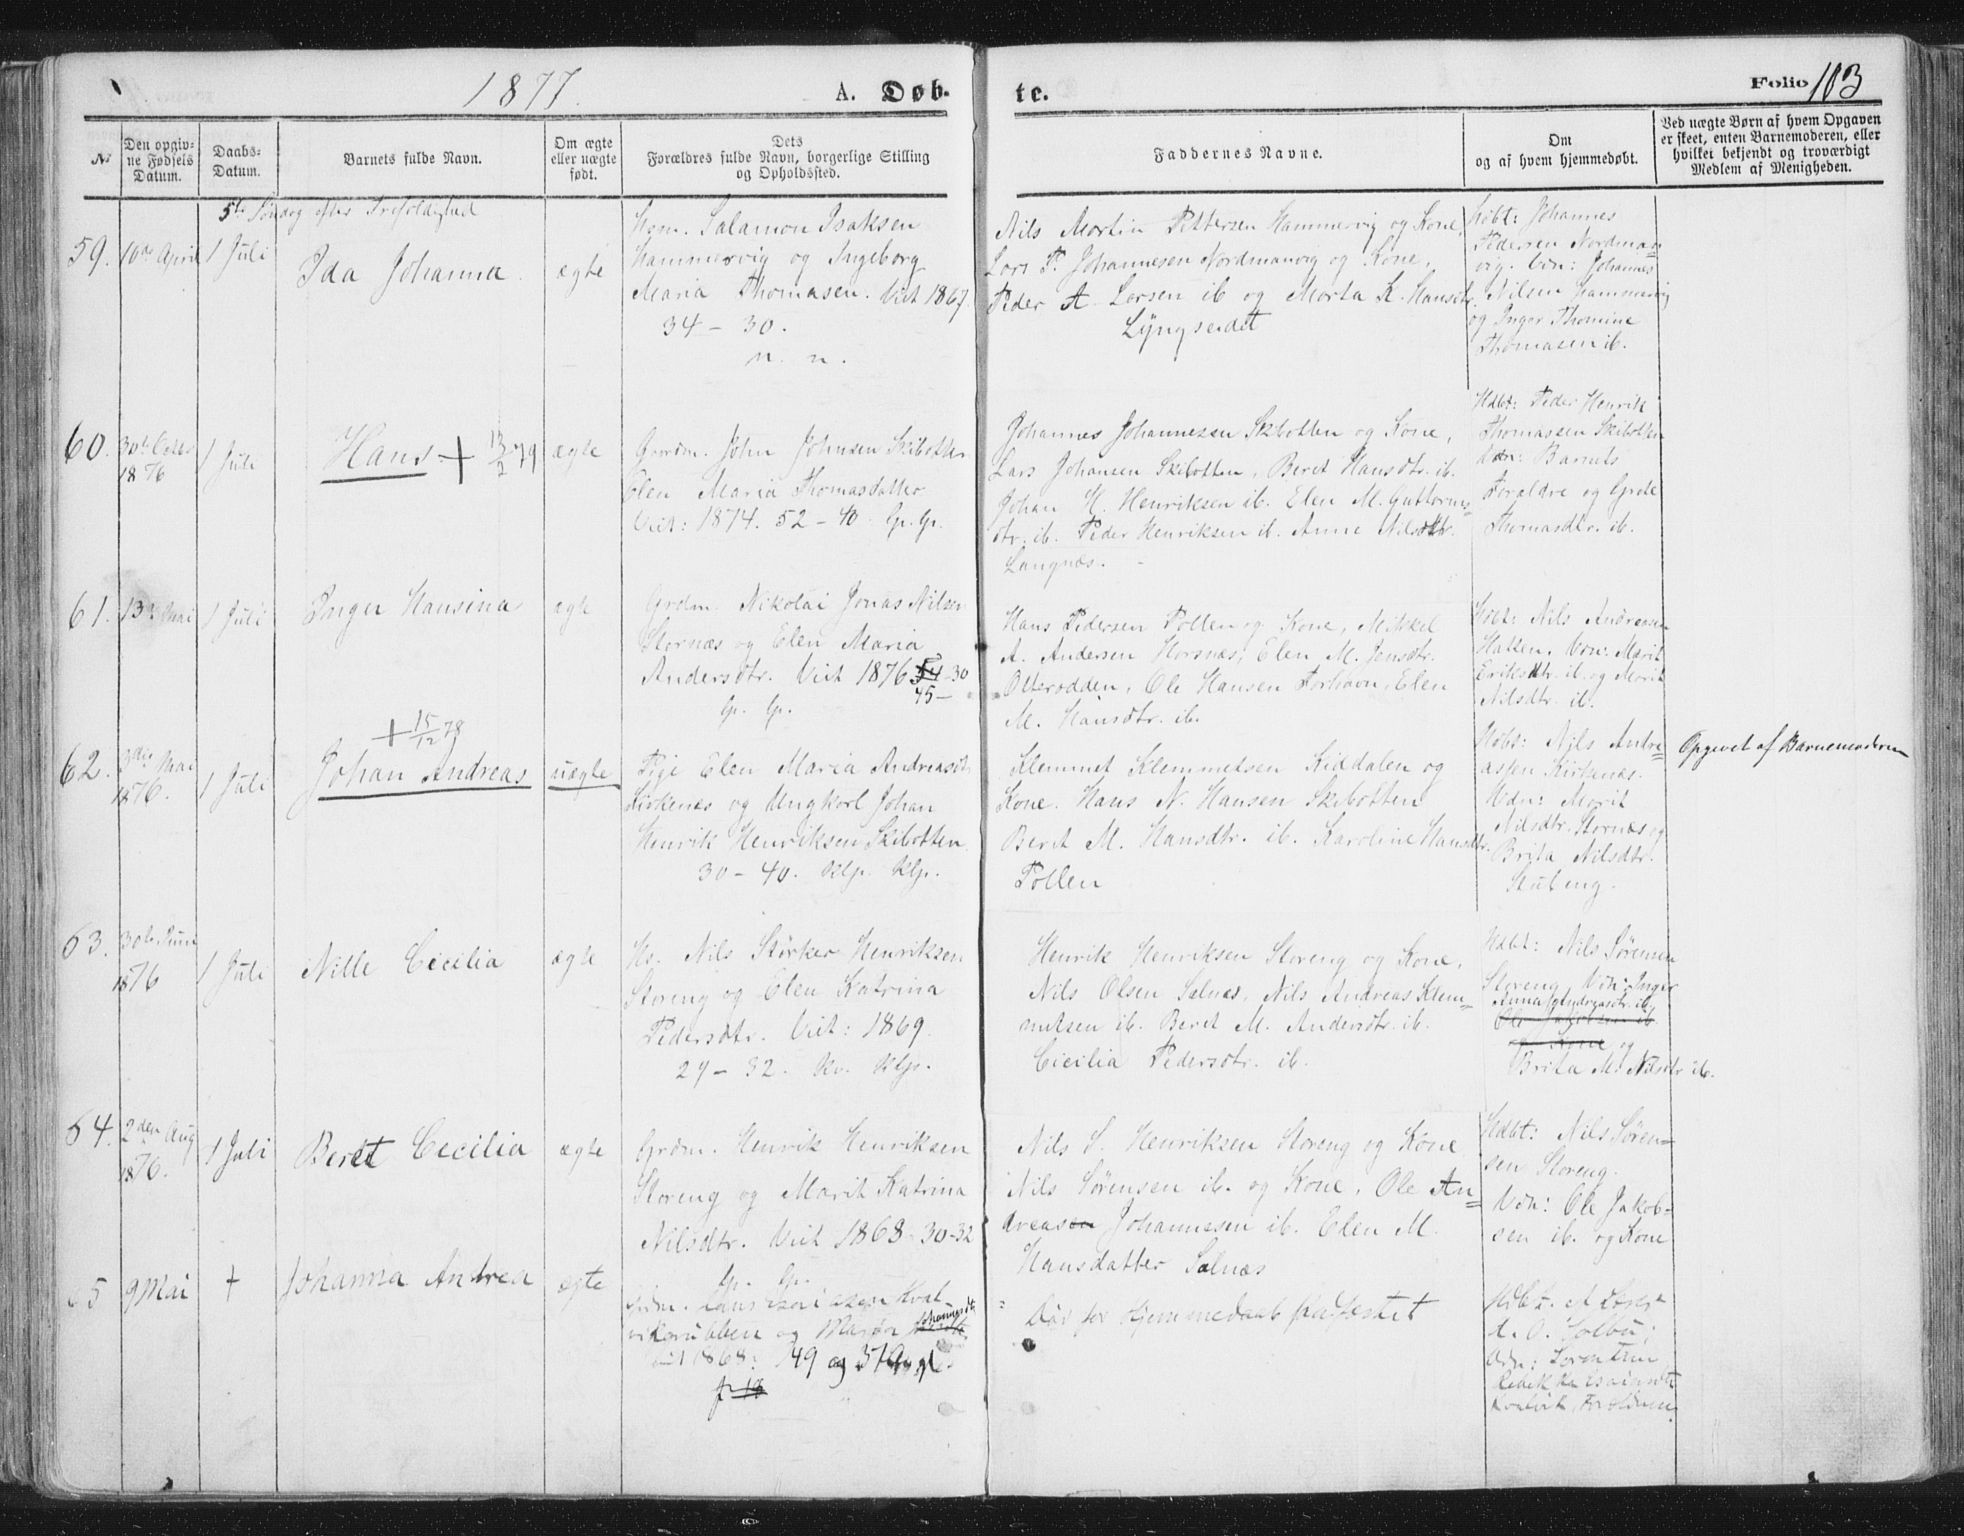 1877.
A. Døb-
te.
Folio 103
No
Den opgiv-
ne Fødsels
Datum.
Daabs-
Datum.
Barnets fulde Navn.
Om ægte
eller uægte
født.
Dets
Forældres fulde Navn, borgerlige Stilling
og Opholdssted.
Faddernes Navne.
Om
og af hvem hjemmedøbt.
Ved uægte Børn af hvem Opgaven
er skeet, enten Barnemoderen, eller
hvilket bekjendt og troværdigt
Medlem af Menigheden.
5te Søndag efter Trefoldighed
59.
10de April
1 Juli
Ida Johanna.
ægte
Hsm. Salamon Isaksen
Hammervig og Ingeborg
Maria Thomasen. Viet 1867.
34 - 30.
n. n.
Nils Mortin Pettersen Hammervig og Kone,
Lars P. Johannesen Nordmanvig og Kone,
Peder A. Larsen ib og Marta K. Hansdtr.
Lyngseidet
Hdbt: Johannes
Pedersen Nordman=
vig. Vdn: Johannes
Nilsen Hammervig
og Inger Thomine
Thomasen ib.
60.
30te Octbr
1876
1 Juli
Hans + 13/2 79
ægte
Gaardm. John Johnsen Skibotten
Elen Maria Thomasdatter
Viet: 1874. 52 - 40. Gp. Gp.
Johannes Johannesen Skibotten og Kone,
Lars Johansen Skibotten, Beret Hansdtr. ib.
Johan H. Henriksen ib. Elen M. Guttorms=
dtr. ib. Peder Henriksen ib. Anne Nilsdtr.
Langnæs.
Hdbt: Peder Henrik
Thomassen Skibotten
Vdn: Barnets
Forældre og Grete
Thomasdtr. ib.
61.
13de Mai
1 Juli
Inger Hansina
ægte
Grdm. Nikolai Jonas Nilsen
Stornæs og Elen Maria
Andersdtr. Viet 1876 54-30
45-
Gp. Gp.
Hans Pedersen Pollen og Kone, Mikkel
A. Andersen Horsnæs, Elen M. Jensdtr.
Otterodden, Ole Hansen Forhavn, Elen
M. Hansdtr. ib.
Hdbt: Nils Andreasen
Hatten. Vdn: Marit
Eriksdtr. ib. og Marit
Nilsdtr. ib.
62.
3die Mai
1876.
1 Juli
+ 15/12 78
Johan Andreas
uægte
Pige Elen Maria Andreasdtr
Kirkenæs og Ungkarl Johan
Henrik Henriksen Skibotten
30 - 40. Klp. Klp.
Klemmet Klemmetsen Kiddalen og
Kone. Hans N. Hansen Skibotten
Beret M. Hansdtr. ib. Karoline Hansdtr.
Pollen
Hdbt: Nils Andre=
assen Kirkenæs.
Vdn: Marit
Nilsdtr. Stornæs og
Brita Nilsdtr.
Stubeng.
Opgivet af Barnemoderen
63.
30te Juni
1876
1 Juli
Nille Cecilia
ægte
Hs. Nils Størker Henriksen
Storeng og Elen Katrina
Pedersdtr. Viet: 1869
29 - 32. Kv. Klp.
Henrik Henriksen Storeng og Kone,
Nils Olsen Salnæs, Nils Andreas Klem=
metsen ib. Beret M. Andersdtr. ib.
Cicilia Pedersdtr. ib.
Hdbt: Nils Sørensen
Storeng Vdn: Inger
Anna Andreasdtr. ib.
Ole Jakobsen ib
og Kone og
Brita M. Nilsdtr ib.
64.
2den Aug
1876.
1 Juli
Beret Cecilia
ægte
Grdm. Henrik Henriksen
Storeng og Marit Katrina
Nilsdtr. Viet 1868 - 30-32
Gp. Gp.
Nils S. Henriksen Storeng og Kone
Nils Sørensen ib. og Kone, Ole An=
dreasen Johannesen ib. Elen M.
Hansdatter Salnæs
Hdbt: Nils Søren=
sen Storeng.
Vdn: Ole Jakob=
sen ib. og Kone
65
9 Mai
+
Johanna Andrea
ægte
Grdm. Hans Esaiasen Kval
vikerubben og Maren Johannesdtr
viet 1868: 49 og 37
Død før Hjemmedaab
Hdbt. A Larsen
Vdn: